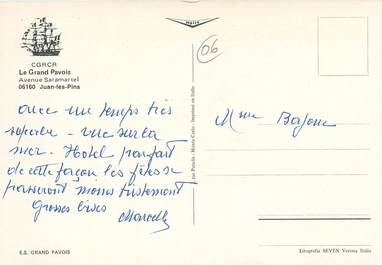 CGRCR
Le Grand Pavois
Avenue Saramartel
06160 Juan-les-Pins
06
avec un temps très
superbe - vue sur la
mer. Hotel parfait
de cette façon les fêtes se
passeront moins tristement
Grosses bises
Marcelle
Mme
E.S. GRAND PAVOIS
Imprimé en Italie
Litografia SEVEN Verona Italia